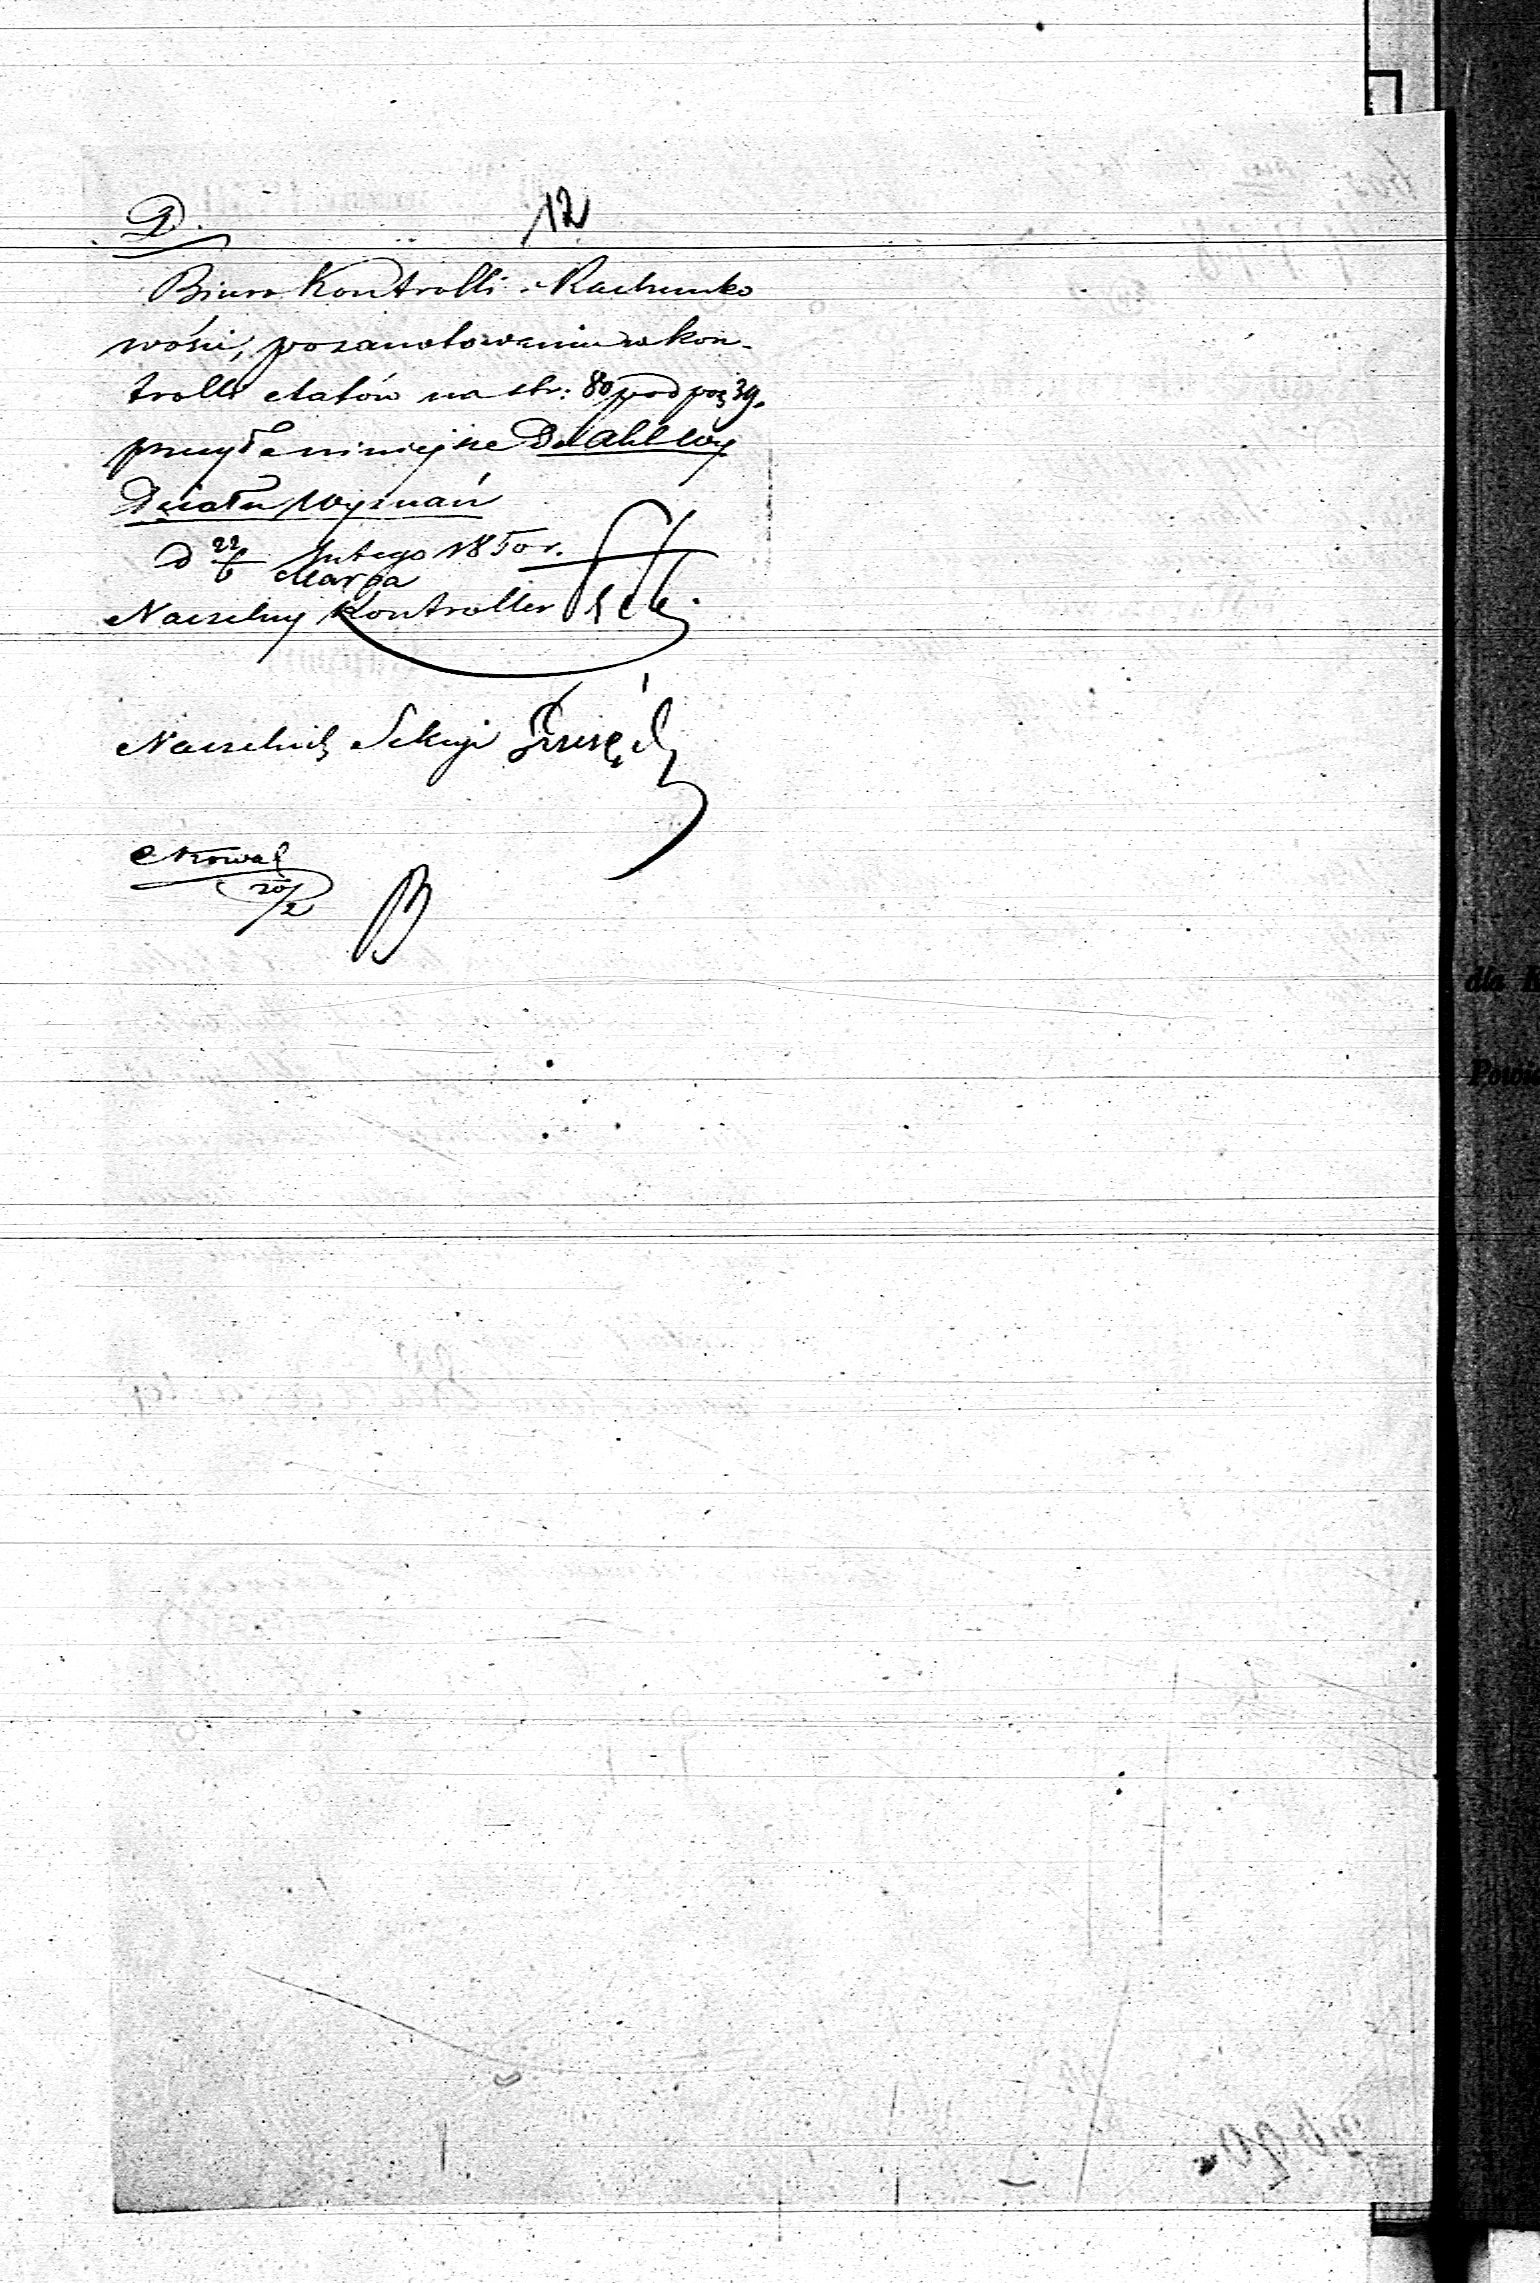 D. 12
Biuro Kontrolli i Rachunko
wości, po zanotowaniu w kon-
trolli etatów na str: 80 pod poz 39.
przesyła niniejsze Do Akt Wy
Działu Wyznań
d 22/6 Lutego/Marca 1850 r.
Naczelny Kontroller
Naczelnik Sekcyi
20/2
B
dla
Powi